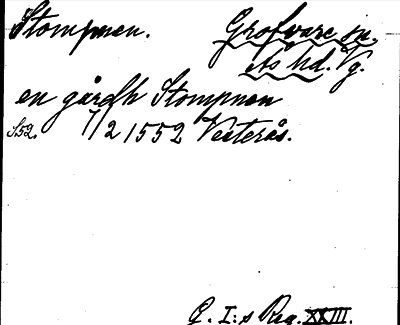 Stompnen. Grofvare sn.
Ås hd. Vg.
en gårdh Stompnen
s52. 7/2 1552 Vesterås.
G. I:s Reg. XXIII.